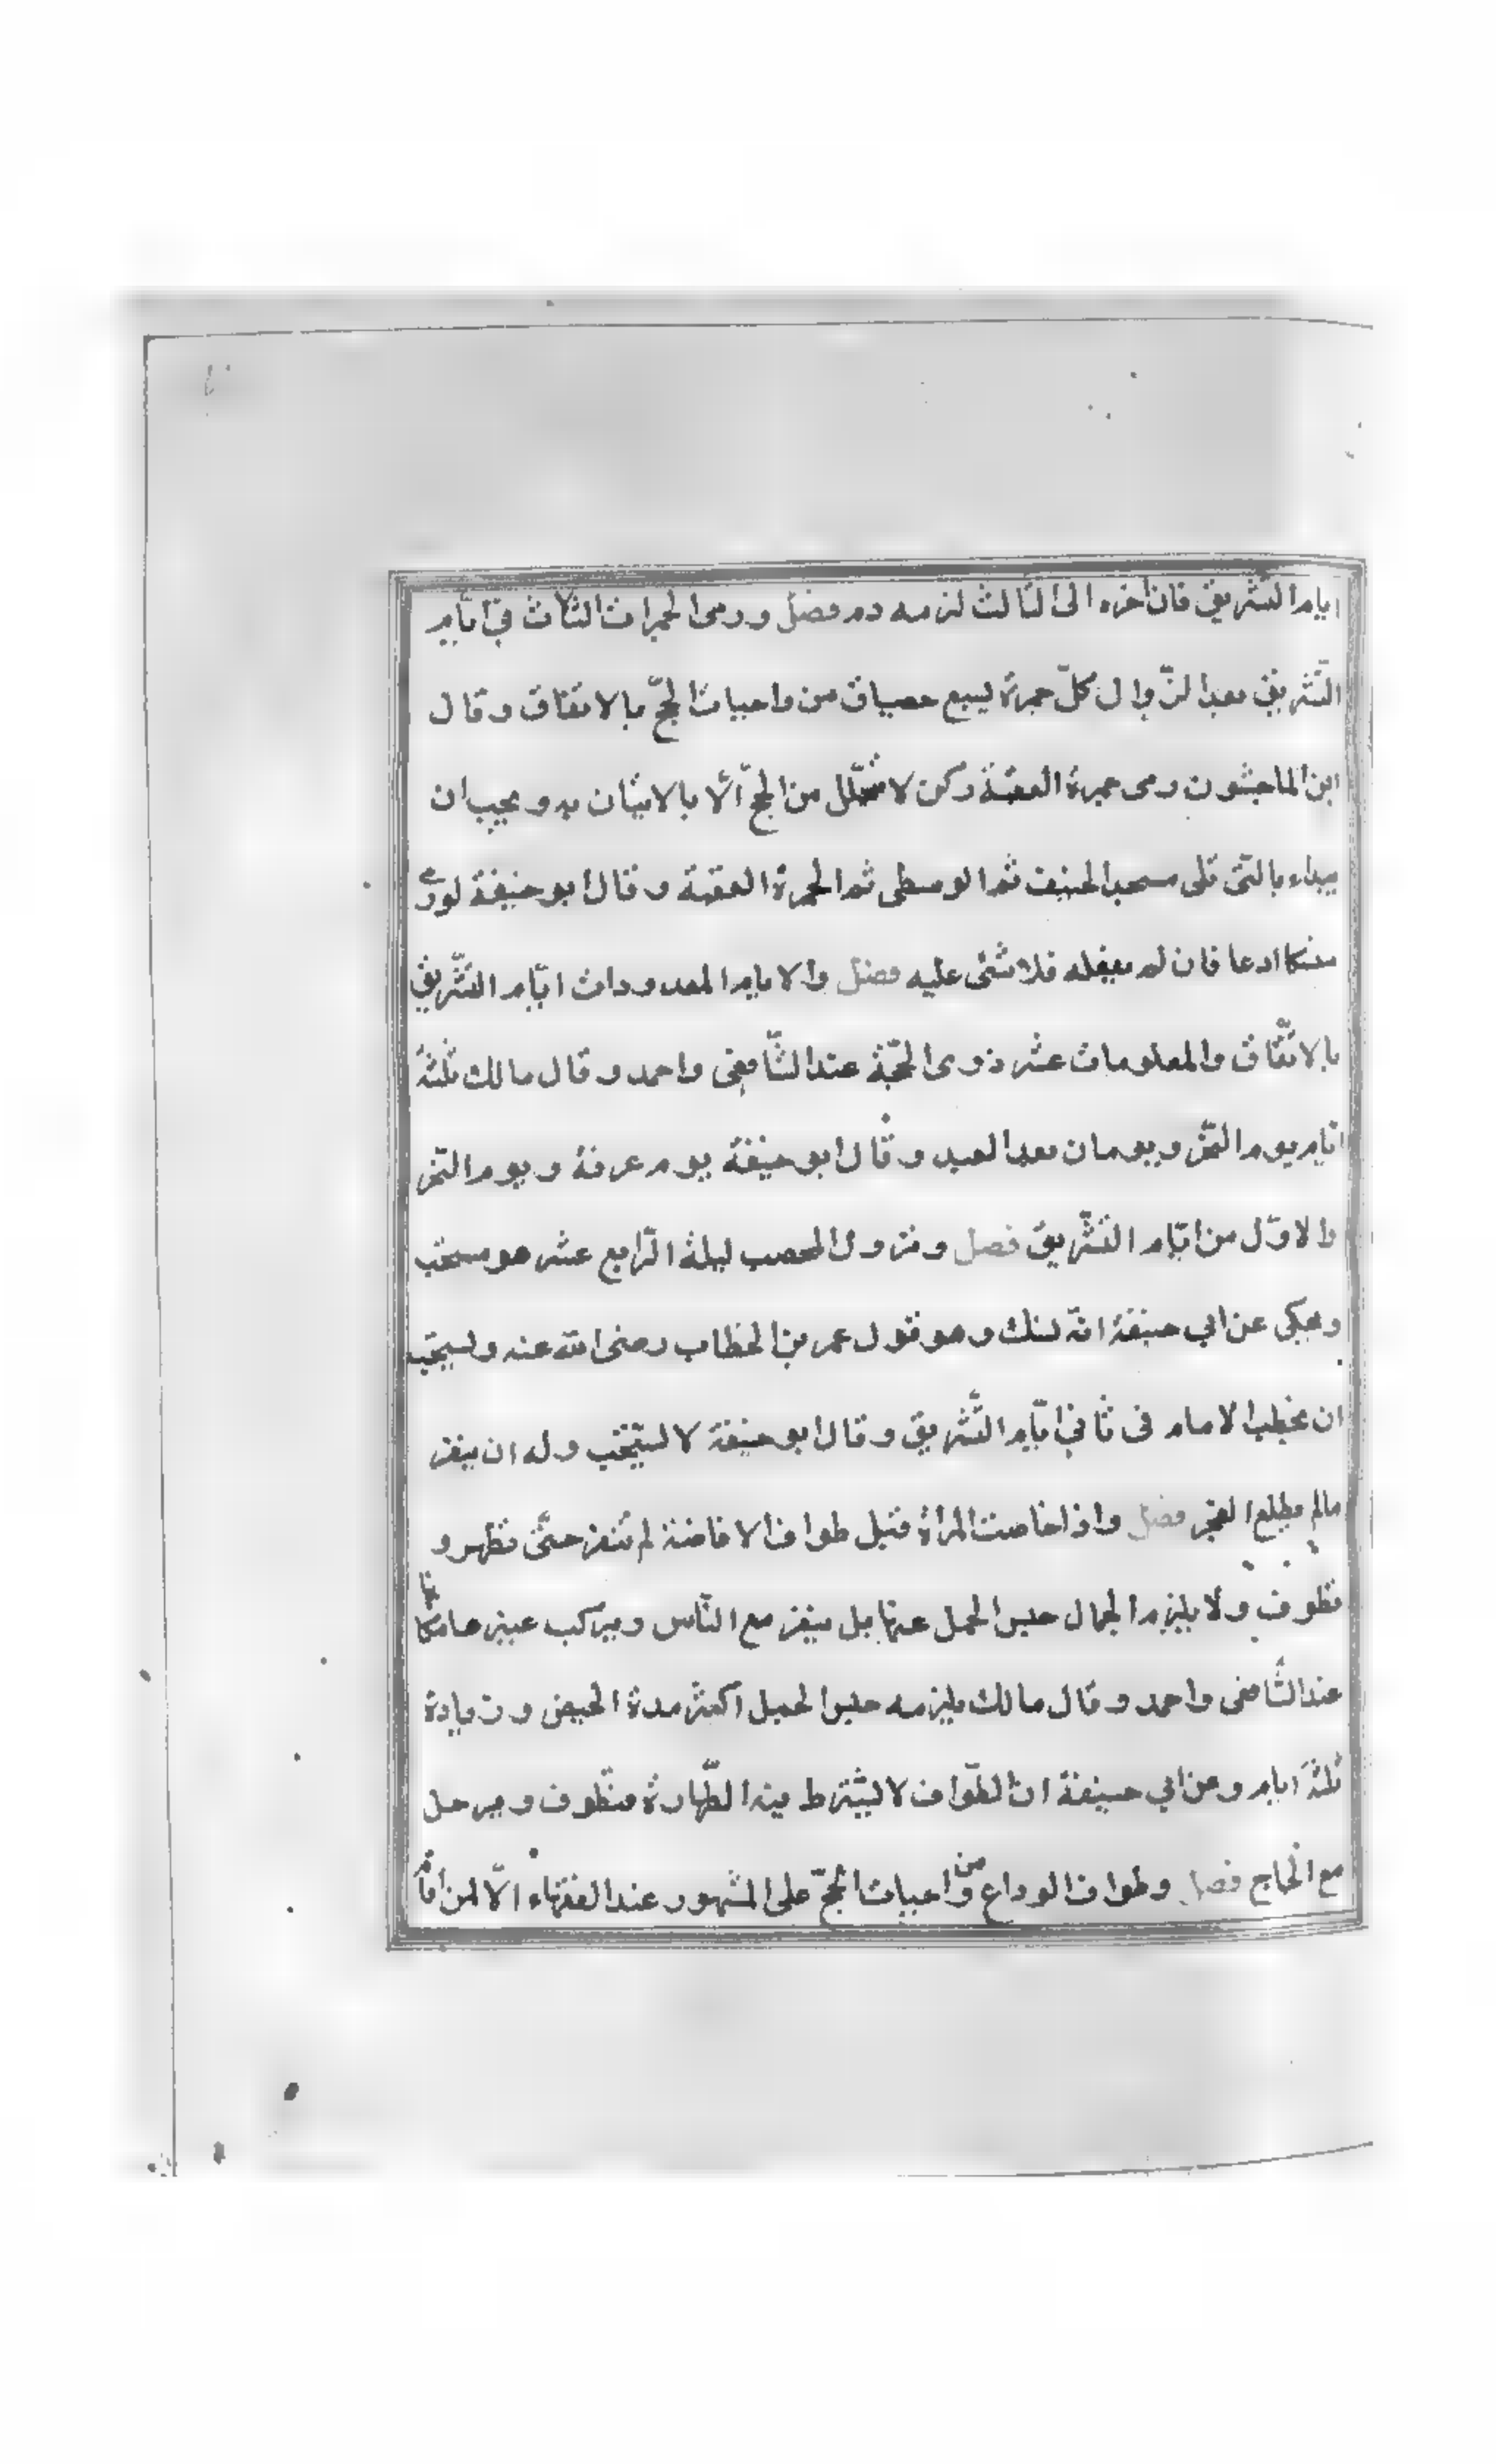 ايام التشريق فان اخره الى الثالث لزمه دم فصل ورمى الجمرات الثلاث في ايّام
التّشريق بعد الزّوال كلّ جمرة بسبع حصيات من واجبات الحجّ بالاتفاق وقال
ابن الماجشون رمى جمرة العقبة ركن لا يتحلّل من الحجّ الّا بالاتيان به ويجب ان
يبداء بالتّى تلى مسجد الخيف ثم الوسطى ثم الجمرة العقبة وقال ابو حنيفة لورمى
منكسا ادعا فان لم يفعله فلا شئ عليه فصل والايام المعدودات ايّام التّشريق
بالاتّفاق والمعلومات عشر ذوى الحجّة عند الشّافعى واحمد وقال مالك ثلثة
ايّام يوم النّحر ويومان بعد العيد وقال ابو حنيفة يوم عرفة ويوم النّحر
والاوّل من ايّام التّشريق فصل ونزول المحصب ليلة الرّابع عشر هو مستحب
ويحكى عن ابي حنيفة انّه نسك وهو قول عمر بن الخطاب رضى الله عنه ويستحب
ان يخطب الامام فى ثاني ايّام التّشريق وقال ابو حنيفة لا يستحب وله ان ينفر
مالم يطلع الفجر فصل واذا حاضت المرأة قبل طواف الافاضة لم تنفر حتّى تطهر و
تطوف ولا يلزم الجمال حبس الجمل عنها بل ينفر مع النّاس ويركب غيرها مكانها
عند الشّافعى واحمد وقال مالك يلزمه حبس الجمل اكثر مدة الحيض وزيادة
ثلثة ايام وعن ابي حنيفة ان الطّواف لا يشترط فيه الطّهارة فتطوف وترحل
مع الحاج فصل وطواف الوداع من واجبات الحجّ على المشهور عند الفقهاء الّا لمن اقام